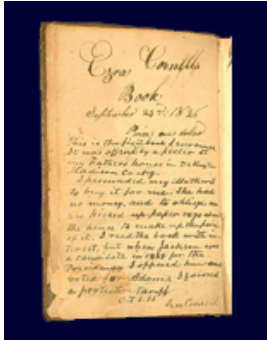 Ezra Cornell's
Book
September 23rd 1825
Price one dollar
This is the first book I ever owned
It was offered by a pedler at
my Fathers house in DeRuyter
Madison County.
I persuaded my Mother
to buy it for me. She had
no money, and to oblige me
she picked up paper rags about
the house to make up the price
of it. I read the book with
but when Jackson was
a candidate in 1828 for the
Presidency I opposed him and
voted for Adams. I favored
a protective tariff
Ezra Cornell